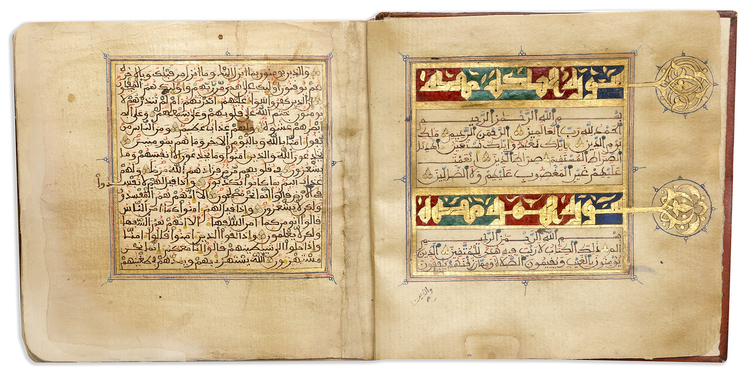 بسم الله الرحمن الرحيم
الحمد لله رب العلمين الرحمن الرحيم ملك
يوم الدين إياك نعبد وإياك نستعين اهدنا
الصراط المستقيم صراط الذين أنعمت
عليهم غير المغضوب عليهم ولا الضالين
بسم الله الرحمن الرحيم
الم ذلك الكتاب لا ريب فيه هدى للمتقين الذين
يومنون بالغيب ويقيمون الصلاة ومما رزقنهم ينفقون
والذين
والذين يومنون بما أنزل إليك وما أنزل من قبلك وبالاخرة
هم يوقنون أوليك على هدى من ربهم وأوليك هم المفلحون
إن الذين كفروا سواء عليهم ءانذرتهم أم لم تنذرهم لا
يومنون ختم الله على قلوبهم وعلى سمعهم وعلى
أبصرهم غشوة ولهم عذاب عظيم ومن الناس من
يقول ءامنا بالله وباليوم الاخر وما هم بمومنين
يخدعون الله والذين ءامنوا وما يخدعون إلا أنفسهم وما
يشعرون في قلوبهم مرض فزادهم الله مرضا ولهم
عذاب أليم بما كانوا يكذبون وإذا قيل لهم لا تفسدوا
في الارض قالوا إنما نحن مصلحون ألا إنهم هم المفسدون
ولكن لا يشعرون وإذا قيل لهم ءامنوا كما ءامن الناس
قالوا أنومن كما ءامن السفهاء ألا إنهم هم السفهاء
ولكن لا يعلمون وإذا لقوا الذين ءامنوا قالوا ءامنا
وإذا خلوا إلى شيطينهم قالوا إنا معكم إنما نحن
مستهزءون الله يستهزئ بهم ويمدهم في طغينهم